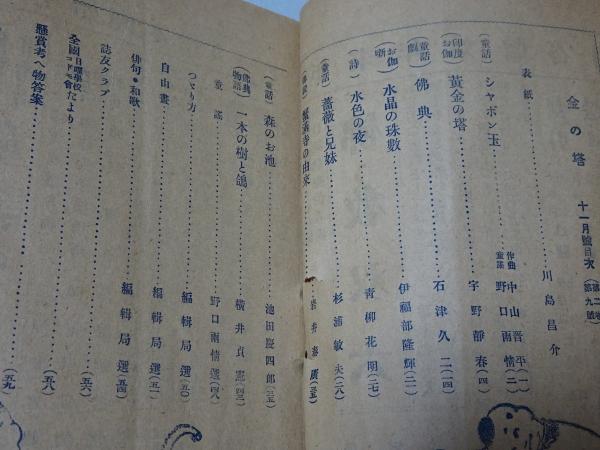 金の塔 十一月號目次 (第二卷 第九號)
表紙 川島昌介
(童謠) シャボン玉 作曲 中山晋平 (一) 童謠 野口雨情 (二)
(印度お伽) 黃金の塔 宇野靜春 (四)
(童話劇) 佛典 石津久二 (一四)
(お伽噺) 水晶の珠數 伊福部隆輝 (二一)
(詩) 水色の夜 青柳花明 (二七)
(童話) 薔薇と兄妹 杉浦敏夫 (二八)
寺の由來 岩井 (三五)
(童話) 森のお池 池田慶四郎 (三五)
(佛典物語) 一本の樹と鴿 橫井貞憲 (四三)
童謠 野口雨情選 (四八)
つゞり方 編輯局選 (五〇)
自由畫 編輯局選 (五一)
俳句・和歌 編輯局選 (五四)
誌友クラブ (五六)
全國日曜學校コドモ會だより (五八)
懸賞考へ物答案 (五九)